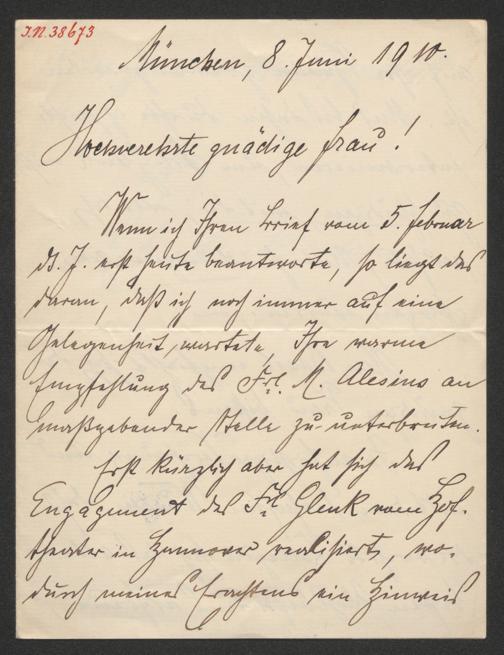 I.N. 38673
München, 8. Juni 1910.
Hochverehrte gnädige Frau!
Wenn ich Ihren Brief vom 5. Februar
ds. J. erst heute beantworte, so liegt das
daran, daß ich noch immer auf eine
Gelegenheit wartete, Ihre warme
Empfehlung des Frl. M. Alesius an
maßgebender Stelle zu unterbreiten.
Erst kürzlich aber hat sich das
Engagement des Frl Glenk vom Hof-
theater in Hannover realisiert, wo-
durch meines Erachtens ein Hinweis